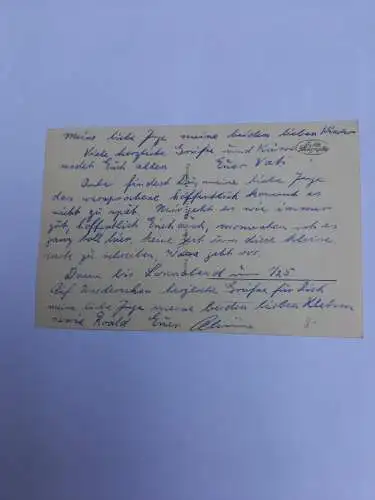 Meine liebe Inge meine beiden lieben Kinder
Viele herzliche Grüße und Küsse
Euch allen Euer Vati
Anbei findest Du meine liebe Inge
das versprochene hoffentlich kommt es
nicht zu spät. Mir geht es wie immer
gut, hoffentlich Euch auch, momentan ist es
ganz toll hier, keine Zeit um diese kleine
Karte zu schreiben,
Dann bis Sonnabend um 1/25
Auf Wiedersehen herzliche Grüße für Dich
meine liebe Inge meine beiden lieben Kleinen
sowie Roald Euer